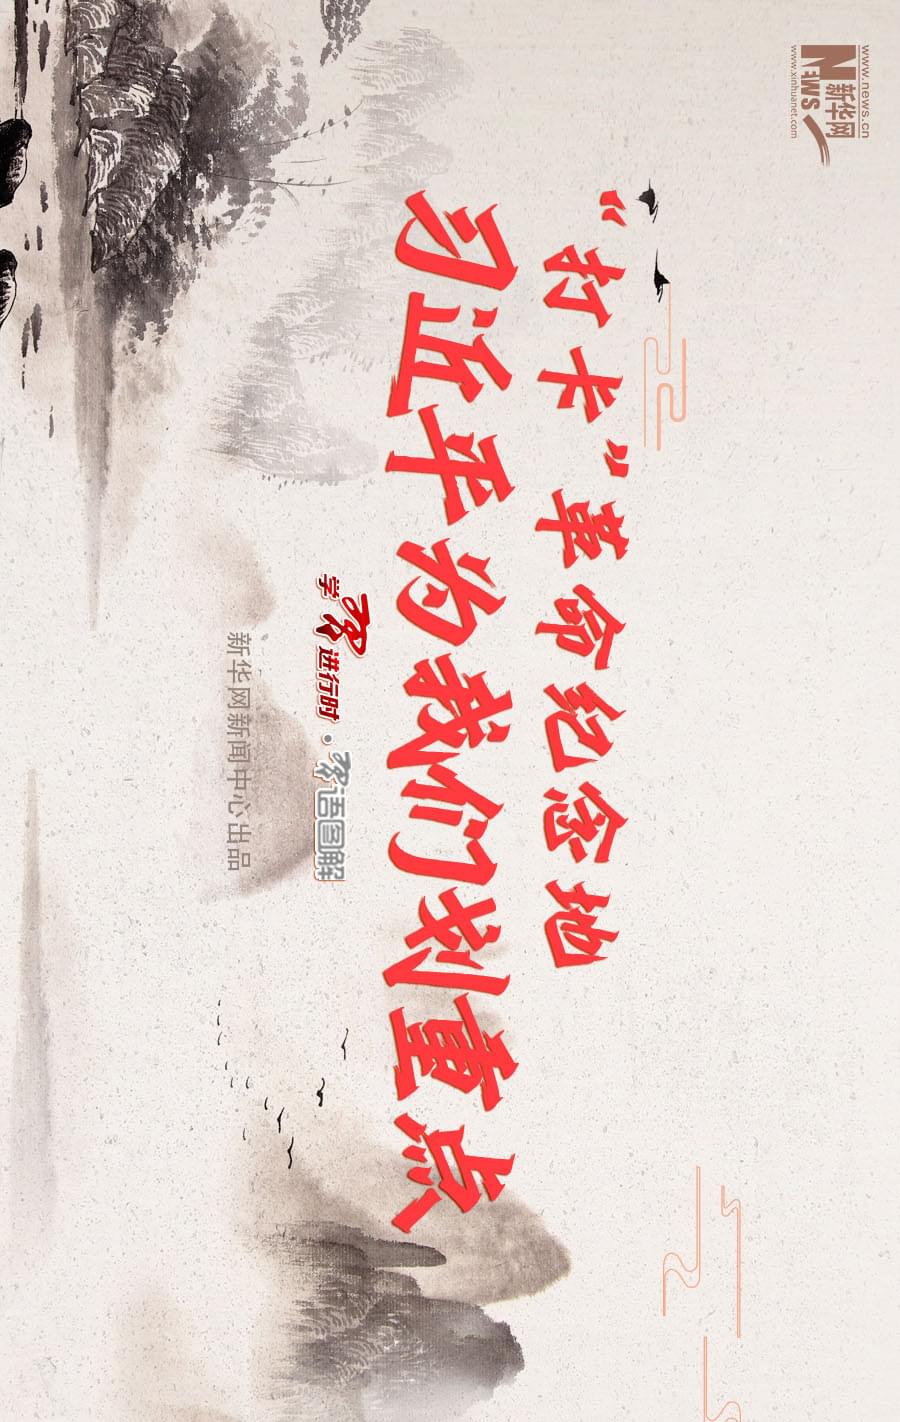 www.news.cn
新华网
NEWS
www.xinhuanet.com
“打卡”革命纪念地
习近平为我们划重点
学习进行时·习语图解
新华网新闻中心出品